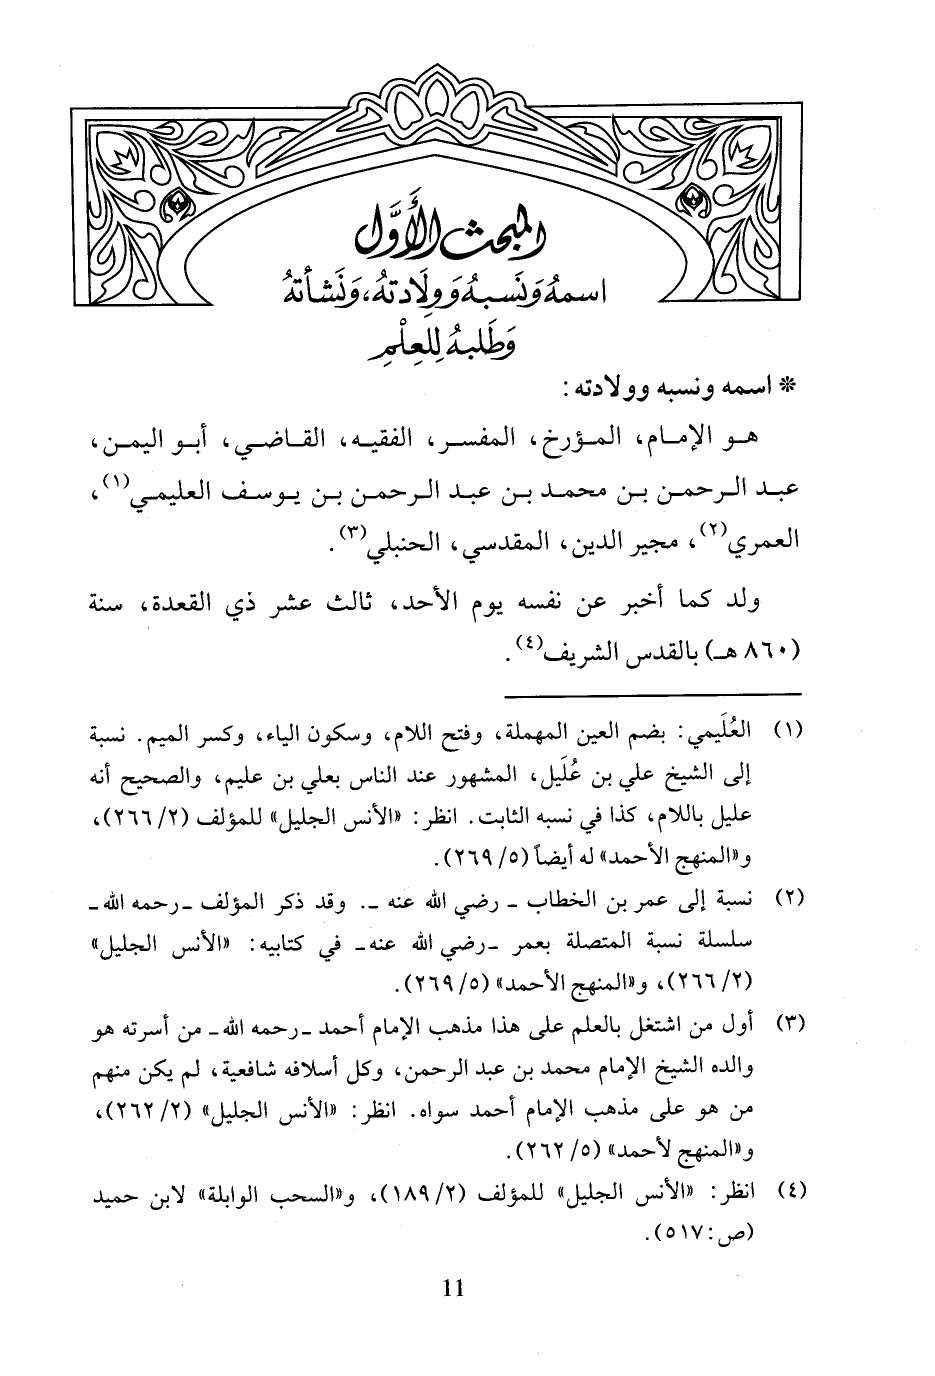 المبحث الأَوَّل
اسمهُ وَنَسبهُ وَولَادتهُ، وَنَشأتهُ
وَطَلبهُ لِلعِلْمِ
* اسمه ونسبه وولادته:
هو الإمام، المؤرخ، المفسر، الفقيه، القاضي، أبو اليمن،
عبد الرحمن بن محمد بن عبد الرحمن بن يوسف العليمي(١)،
العمري(٢)، مجير الدين، المقدسي، الحنبلي(٣).
ولد كما أخبر عن نفسه يوم الأحد، ثالث عشر ذي القعدة، سنة
(٨٦٠ هـ) بالقدس الشريف(٤).
(١) العُلَيمي: بضم العين المهملة، وفتح اللام، وسكون الياء، وكسر الميم. نسبة
إلى الشيخ علي بن عُلَيل، المشهور عند الناس بعلي بن عليم، والصحيح أنه
عليل باللام، كذا في نسبه الثابت. انظر: «الأنس الجليل» للمؤلف (٢/ ٢٦٦)،
و«المنهج الأحمد» له أيضاً (٥/ ٢٦٩).
(٢) نسبة إلى عمر بن الخطاب ـ رضي الله عنه ـ. وقد ذكر المؤلف ـ رحمه الله ـ
سلسلة نسبة المتصلة بعمر ـ رضي الله عنه ـ في كتابيه: «الأنس الجليل»
(٢/ ٢٦٦)، و«المنهج الأحمد» (٥/ ٢٦٩).
(٣) أول من اشتغل بالعلم على هذا مذهب الإمام أحمد ـ رحمه الله ـ من أسرته هو
والده الشيخ الإمام محمد بن عبد الرحمن، وكل أسلافه شافعية، لم يكن منهم
من هو على مذهب الإمام أحمد سواه. انظر: «الأنس الجليل» (٢/ ٢٦٢)،
و«المنهج لأحمد» (٥/ ٢٦٢).
(٤) انظر: «الأنس الجليل» للمؤلف (٢/ ١٨٩)، و«السحب الوابلة» لابن حميد
(ص: ٥١٧).
11